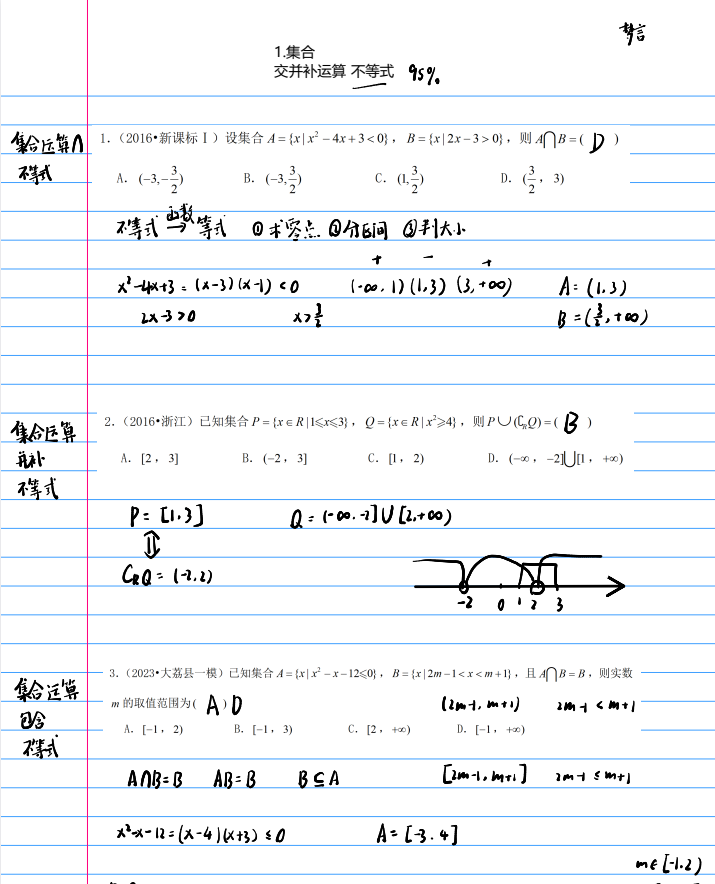 梦言
1.集合
交并补运算 不等式 95%
集合运算∩
不等式
1.（2016•新课标Ⅰ）设集合 A={x|x²−4x+3<0}，B={x|2x−3>0}，则 A⋂B=( D )
A. (−3,−3/2) B. (−3,3/2) C. (1,3/2) D. (3/2，3)
不等式 函数→ 等式 ①求零点 ②分区间 ③判大小
+ − +
x²-4x+3=(x-3)(x-1)<0 (-∞,1)(1,3)(3,+∞) A=(1,3)
2x-3>0 x>3/2 B=(3/2,+∞)
集合运算
并补
不等式
2.（2016•浙江）已知集合 P={x∈R|1⩽x⩽3}，Q={x∈R|x²⩾4}，则 P∪(∁RQ)=( B )
A. [2，3] B. (−2，3] C. [1，2) D. (−∞，−2]⋃[1，+∞)
P=[1,3] Q=(-∞,-2]∪[2,+∞)
⇕
CRQ=(-2,2)
-2 0 1 2 3
集合运算
包含
不等式
3.（2023•大荔县一模）已知集合 A={x|x²−x−12⩽0}，B={x|2m−1<x<m+1}，且 A⋂B=B，则实数
m 的取值范围为( A ) D (2m-1,m+1) 2m-1<m+1
A. [−1，2) B. [−1，3) C. [2，+∞) D. [−1，+∞)
A∩B=B AB=B B⊆A [2m-1,m+1] 2m-1≤m+1
x²-x-12=(x-4)(x+3)≤0 A=[-3,4]
m∈[-1,2)